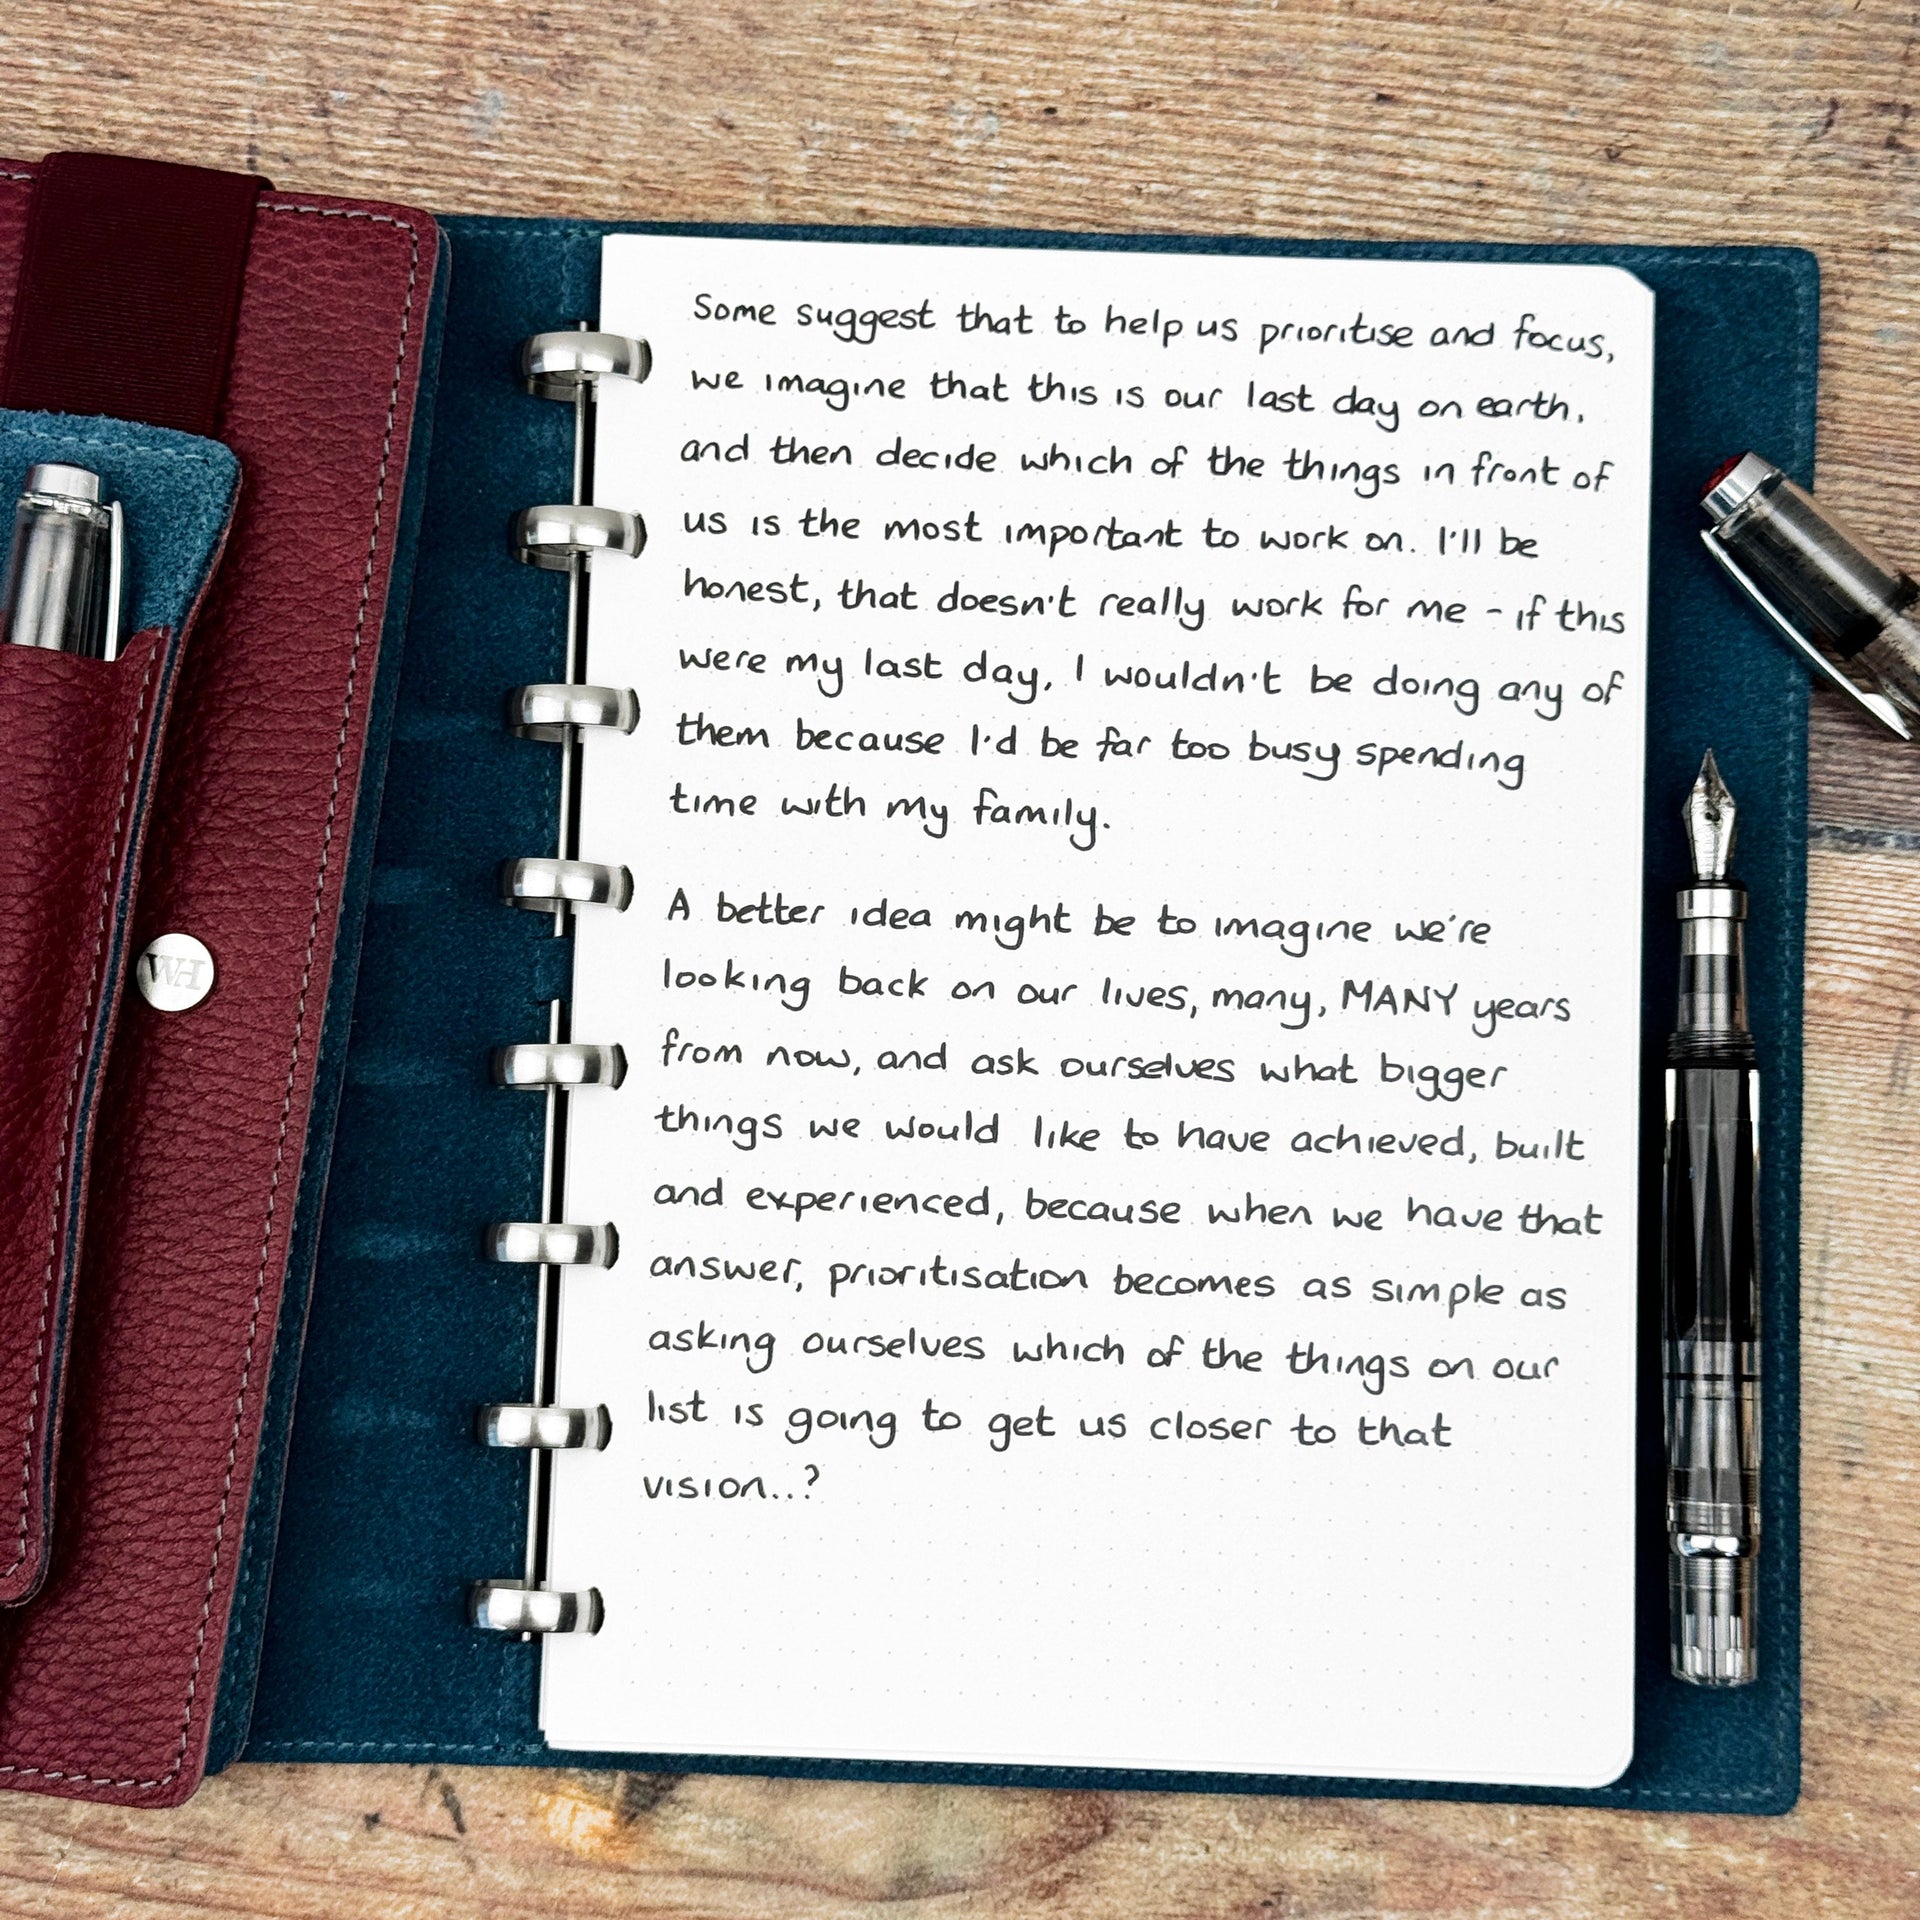 Some suggest that to help us prioritise and focus,
we imagine that this is our last day on earth,
and then decide which of the things in front of
us is the most important to work on. I'll be
honest, that doesn't really work for me - if this
were my last day, I wouldn't be doing any of
them because I'd be far too busy spending
time with my family.
A better idea might be to imagine we're
looking back on our lives, many, MANY years
from now, and ask ourselves what bigger
things we would like to have achieved, built
and experienced, because when we have that
answer, prioritisation becomes as simple as
asking ourselves which of the things on our
list is going to get us closer to that
vision...?
WH